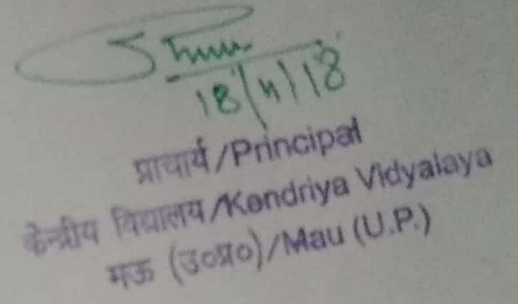 18/11/18
प्राचार्य/Principal
केन्द्रीय विद्यालय/Kendriya Vidyalaya
मऊ (उ०प्र०)/Mau (U.P.)